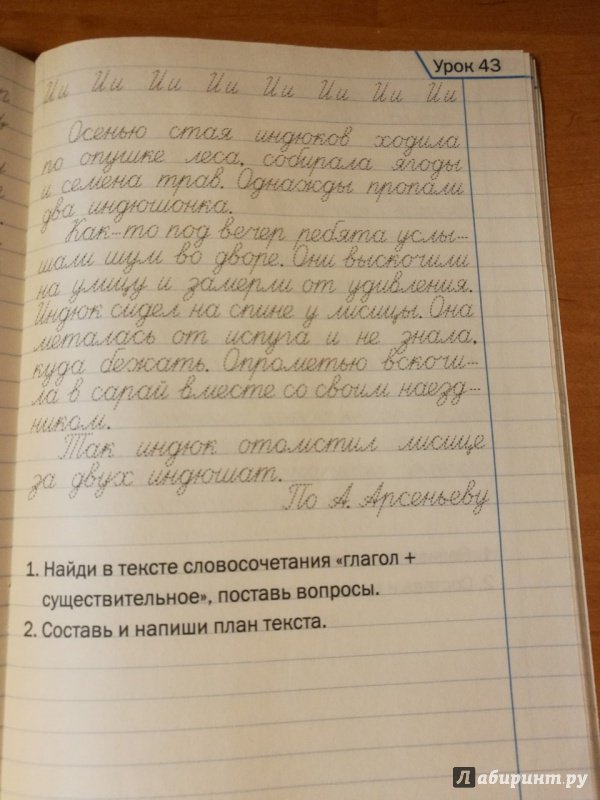 Урок 43
Ии Ии Ии Ии Ии Ии Ии Ии
Осенью стая индюков ходила
по опушке леса, собирала ягоды
и семена трав. Однажды пропали
два индюшонка.
Как-то под вечер ребята услы-
шали шум во дворе. Они выскочили
на улицу и замерли от удивления.
Индюк сидел на спине у лисицы. Она
металась от испуга и не знала,
куда бежать. Опрометью вскочи-
ла в сарай вместе со своим наезд-
ником.
Так индюк отомстил лисице
за двух индюшат.
По А. Арсеньеву
1. Найди в тексте словосочетания «глагол +
существительное», поставь вопросы.
2. Составь и напиши план текста.
Лабиринт.ру